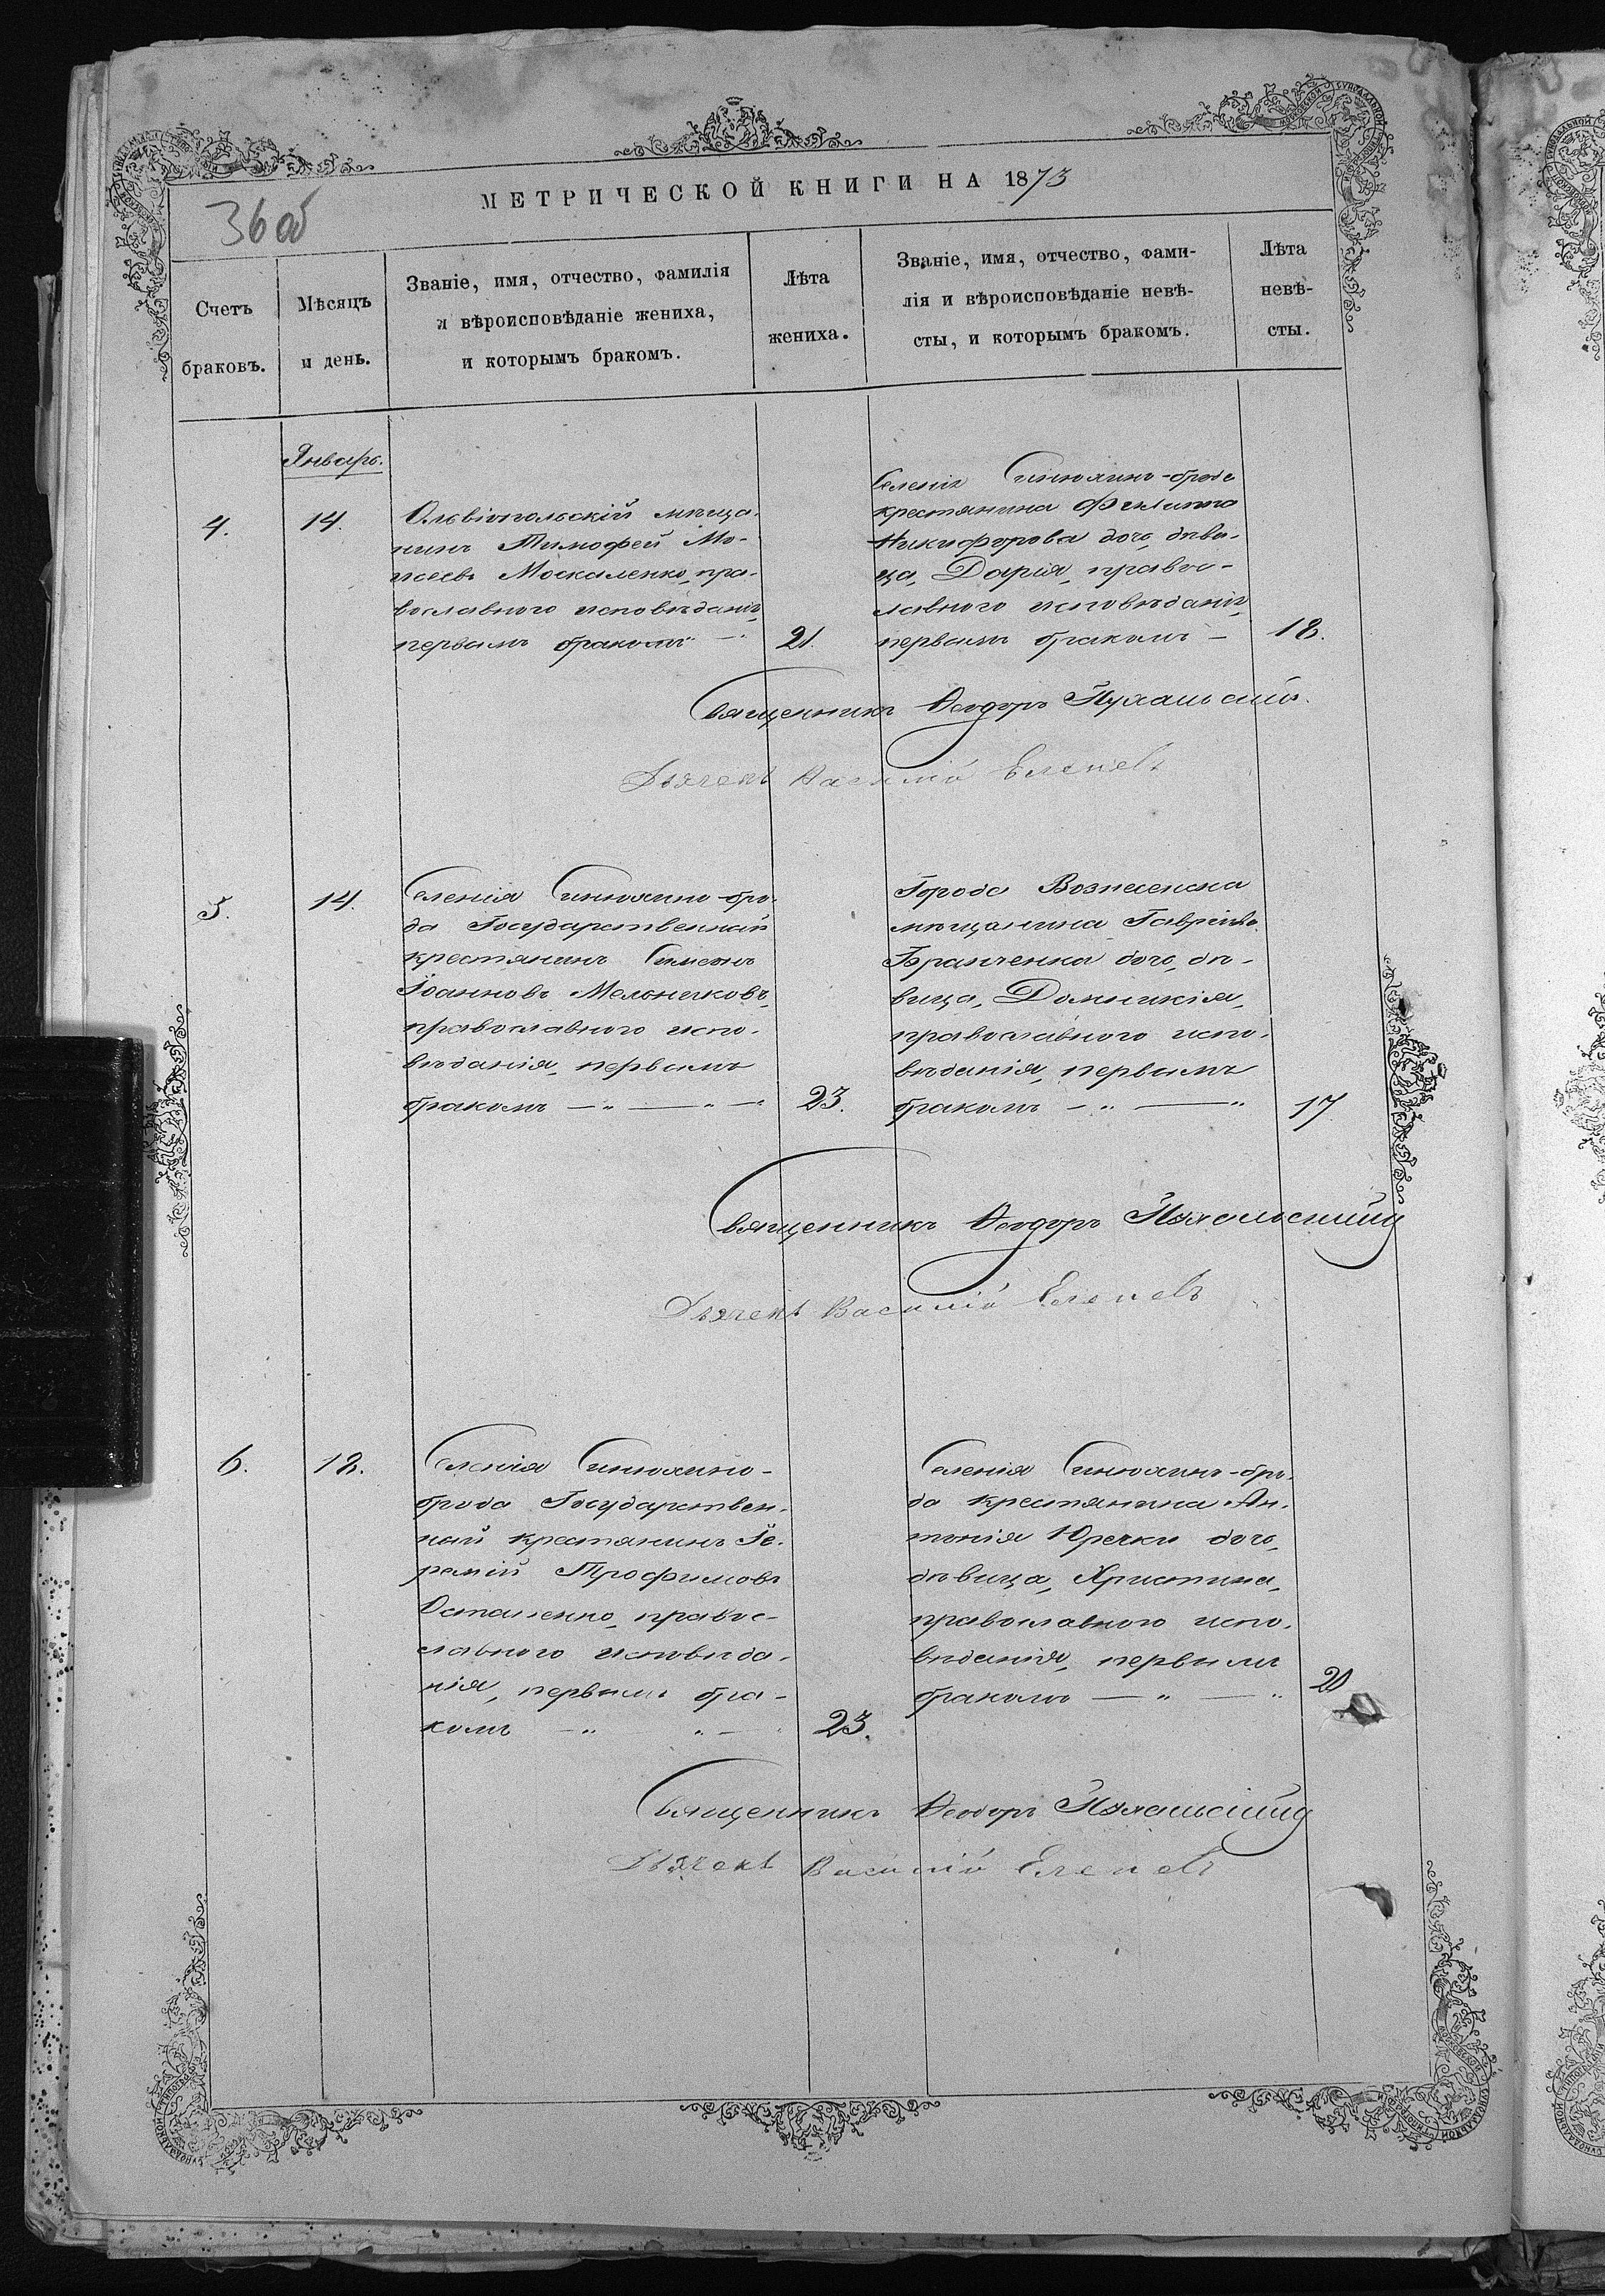 МЕТРИЧЕСКОЙ КНИГИ НА 1873
36 об
Счетъ браковъ.
Мѣсяцъ и день.
Званіе, имя, отчество, фамилія
и вѣроисповѣданіе жениха,
и которымъ бракомъ.
Лѣта
жениха.
Званіе, имя, отчество, фами-
лія и вѣроисповѣданіе невѣ-
сты, и которымъ бракомъ.
Лѣта
невѣ-
сты.
Январь.
4.
14.
Ольвіопольскій мѣща-
нинъ Тимофей Мо-
исеевъ Москаленко, пра-
вославнаго исповѣданія,
первымъ бракомъ
21.
Селенія Синюхинъ-брода
крестянина Филиппа
Никифорова доч., дѣви-
ца, Дарія, правос-
лавного исповѣданія,
первымъ бракомъ —
18.
Священникъ Феодоръ Пухальскій.
Дьячекъ Василій Еленевъ
5.
14.
Селенія Синюхино-бро-
да Государственный
крестянинъ Симеонъ
Іоанновъ Мельниковъ,
православного испо-
вѣданія, первымъ
бракомъ
23.
Города Вознесенска
мѣщанина Гавріила
Бранченка доч., дѣ-
вица, Домникія,
православного испо-
вѣданія, первымъ
бракомъ
17
Священникъ Феодоръ Пухальскій
Дьячекъ Василій Еленевъ
6.
18.
Селенія Синюхино-
брода Государствен-
ный крестянинъ Іе-
ремій Трофимовъ
Остапенко, правос-
лавного исповѣда-
нія, первымъ бра-
комъ
23.
Селенія Синюхинъ-бро-
да крестянина Ан-
тонія Юречки доч.,
дѣвица, Христина,
православного испо-
вѣданія, первымъ
бракомъ
20
Священникъ Феодоръ Пухальскій
Дьячекъ Василій Еленевъ